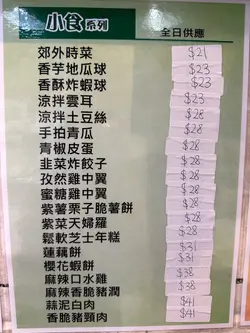 小食系列 全日供應
郊外時菜 $21
香芋地瓜球 $23
香酥炸蝦球 $23
涼拌雲耳 $23
涼拌土豆絲 $28
手拍青瓜 $28
青椒皮蛋 $28
韭菜炸餃子 $28
孜然雞中翼 $28
蜜糖雞中翼 $28
紫薯栗子脆薯餅 $28
紫菜天婦羅 $28
鬆軟芝士年糕 $28
蓮藕餅 $31
櫻花蝦餅 $31
麻辣口水雞 $38
麻辣香脆豬潤 $38
蒜泥白肉 $41
香脆豬頸肉 $41